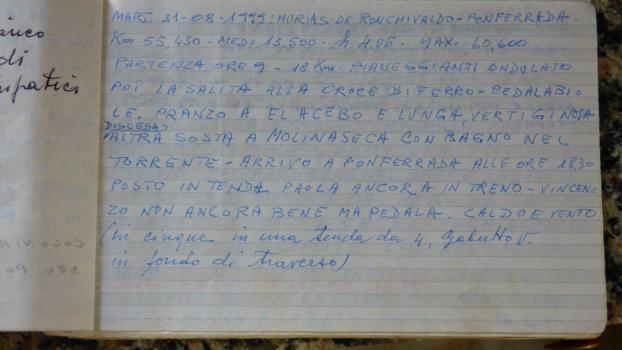 anco
di
mpatici
MART. 31-08-1999: MURIAS DE RONCHIVALDO-PONFERRADA-
Km 55,430 - MED= 13,500 - h. 4,06 - MAX= 60,600
PARTENZA ORE 9 - 18 Km. PIANEGGIANTI ONDULATO
POI LA SALITA ALLA CROCE DI FERRO-PEDALABIO
LE. PRANZO A EL ACEBO E LUNGA, VERTIGINOSA
DISCESA,
ALTRA SOSTA A MOLINASECA CON BAGNO NEL
TORRENTE - ARRIVO A PONFERRADA ALLE ORE 18,30
POSTO IN TENDA PAOLA ANCORA IN TRENO - VINCEN-
ZO NON ANCORA BENE MA PEDALA. CALDO E VENTO
(in cinque in una tenda da 4, Gabutto V.
in fondo di traverso)